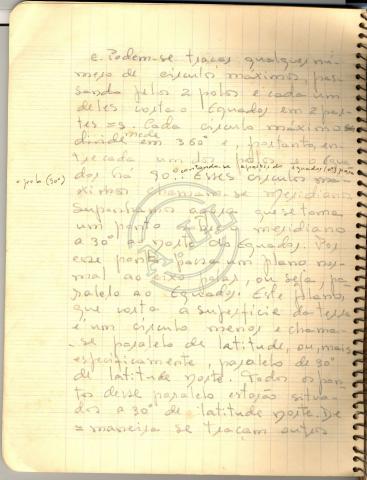 e. Podem-se traçar qualquer nú-
mero de circulos maximos, pas-
sando pelos 2 polos e cada um
deles corta o Equador em 2 par-
tes =s. Cada circulo maximo se
divide mede em 360° e, portanto, en-
tre cada um dos polos e o Equa-
dor há 90°. Esses circulos ma-
contando-se a partir do equador (0°) para
o polo (90°)
ximos chamam-se meridianos
Suponhamos agora que se tome
um ponto meridiano
a 30° ao norte do Equador. Por
esse ponto passa um plano nor-
mal ao eixo polar, ou seja, pa-
ralelo ao Equador. Este plano,
que corta a superficie da terra
é um circulo menor e chama-
se paralelo de latitude, ou, mais
especificamente, paralelo de 30°
de latitude norte. Todos os pon-
tos desse paralelo estarão situa-
dos a 30° de latitude norte. De
= maneira se traçam outros